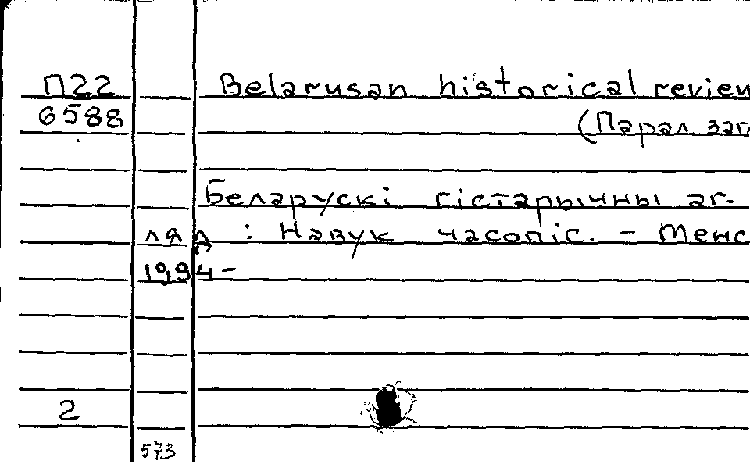 П22 Belarusan historical review
6588 (Парал заг
Беларускі гістарычны аг-
ляд : Навук часопіс. - Менс
1994-
2
573